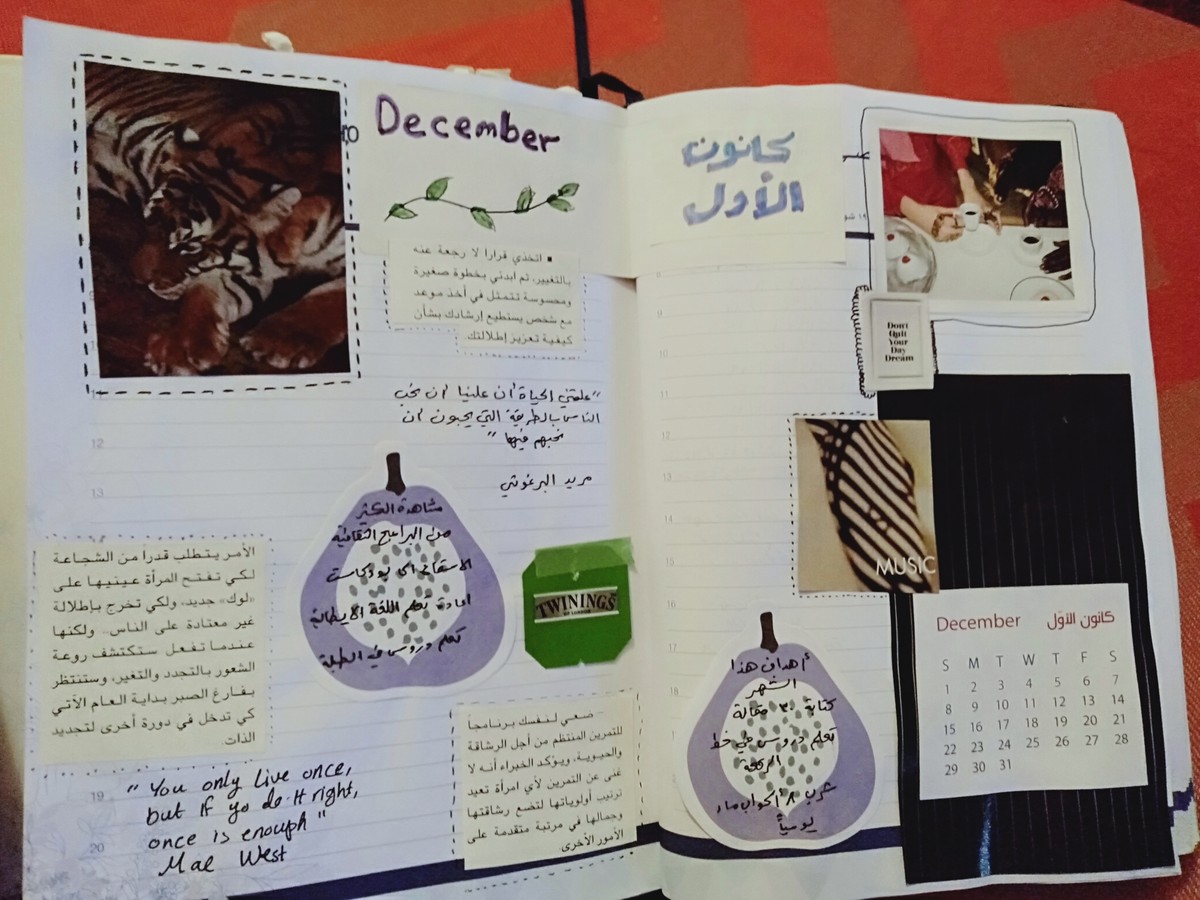 December
■ اتخذي قرارا لا رجعة عنه
بالتغيير، ثم ابدئي بخطوة صغيرة
ومحسوسة تتمثل في أخذ موعد
مع شخص يستطيع إرشادك بشأن
كيفية تعزيز إطلالتك.
"علمتني الحياة أن علينا أن نحب
الناس بالطريقة التي يحبون أن
نحبهم فيها"
مريد البرغوثي
12
13
مشاهدة الكثير
من البرامج الثقافية
الاستماع الى بودكاست
اعادة تعلم اللغة الايطالية
تعلم دروس في الطبلة
TWININGS
OF LONDON
الأمر يتطلب قدرا من الشجاعة
لكي تفتح المرأة عينيها على
«لوك» جديد، ولكي تخرج بإطلالة
غير معتادة على الناس.. ولكنها
عندما تفعل ستكتشف روعة
الشعور بالتجدد والتغير، وستنتظر
بفارغ الصبر بداية العام الآتي
كي تدخل في دورة أخرى لتجديد
الذات
- ضعي لنفسك برنامجاً
للتمرين المنتظم من أجل الرشاقة
والحيوية، ويؤكد الخبراء أنه لا
غنى عن التمرين لأي امرأة تعيد
ترتيب أولوياتها لتضع رشاقتها
وجمالها في مرتبة متقدمة على
الأمور الأخرى.
19
20
"You only live once,
but If yo do it right,
once is enough"
Mae West
كانون
الأول
9
10
11
12
13
14
15
16
17
18
Don't
Quit
Your
Day
Dream
MUSIC
أهداف هذا
الشهر
كتابة ٣٠ مقالة
تعلم دروس في خط
الرقعة
شرب ٨ أكواب ماء
يومياً
December كانون الأوّل
S M T W T F S
1 2 3 4 5 6 7
8 9 10 11 12 13 14
15 16 17 18 19 20 21
22 23 24 25 26 27 28
29 30 31